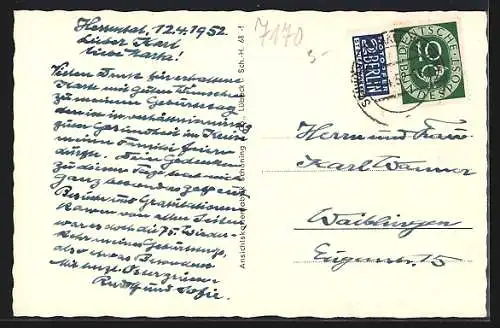 Herrental, 12.4.1952
Lieber Karl
liebe Martha!
Vielen Dank für erhaltene
Karte mit guten Wünschen
zu meinem Geburtstag
den ich in verhältnismäßig
guter Gesundheit im Kreise
meiner Familie feiern
durfte. Dein Gedenken
zu diesem Tage hat mich
ganz besonders gefreut
Besuche und Gratulationen
kamen von allen Seiten
war es doch die 75. Wieder-
kehr meines Geburtstags,
also etwas Besonderes
Mit herzl. Ostergrüssen
Rudolf und Sofie.
7170
5-
Ansichtskartenfabrik Schöning & Co., Lübeck Sch.-H. 48
2 NOTOPFER
BERLIN
STEUERMARKE
DEUTSCHE BUNDESPOST
10
Herrn und Frau
Karl Wanner
Waiblingen
Eugenstr. 15